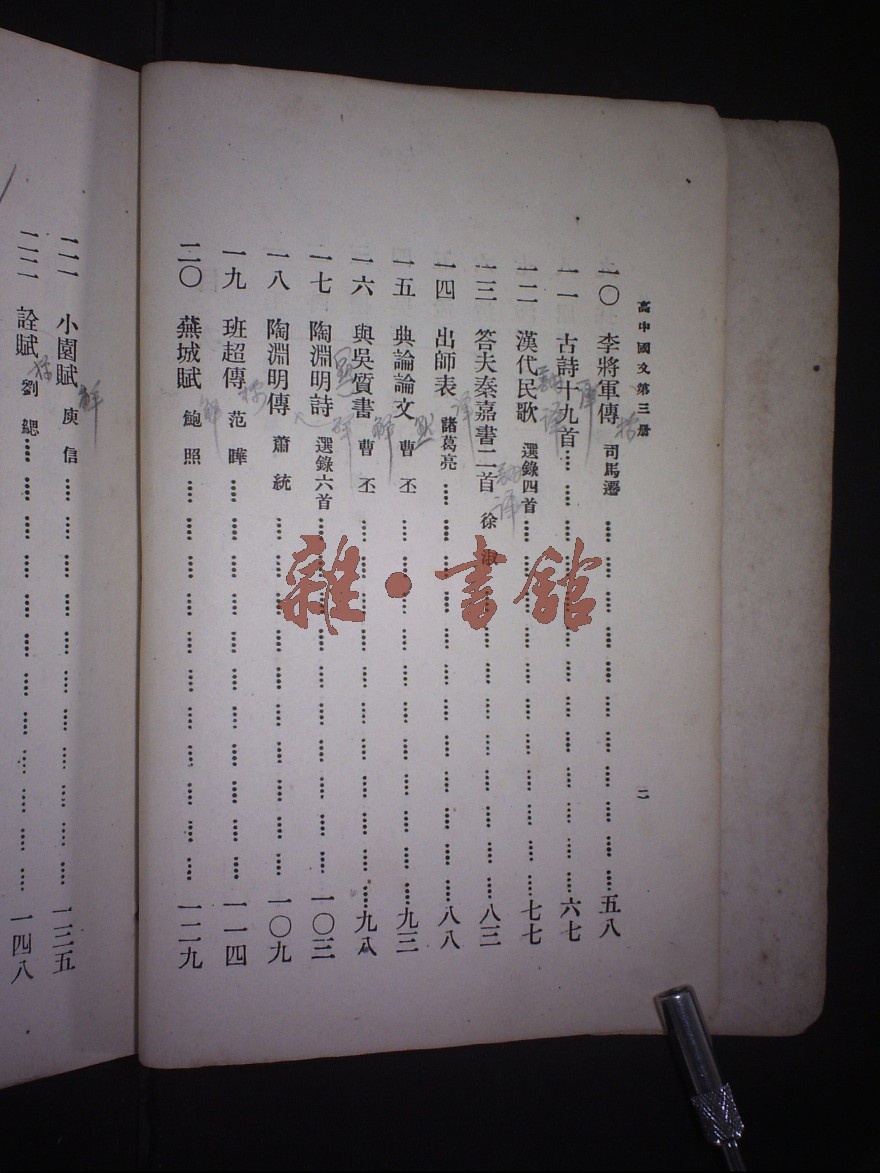 高中國文第三册
二
一〇 李將軍傳 司馬遷 五八
一一 古詩十九首 六七
一二 漢代民歌 選錄四首 七七
一三 答夫秦嘉書二首 徐淑 八三
一四 出師表 諸葛亮 八八
一五 典論論文 曹丕 九三
一六 與吳質書 曹丕 九八
一七 陶淵明詩 選錄六首 一〇三
一八 陶淵明傳 蕭統 一〇九
一九 班超傳 范曄 一一四
二〇 蕪城賦 鮑照 一二九
二一 小園賦 庾信 一三五
二二 詮賦 劉勰 一四八
雜·書館